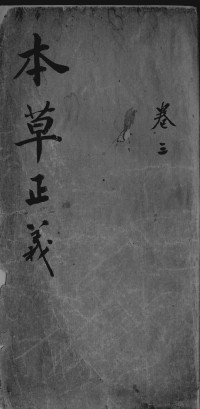 本草正義
卷三